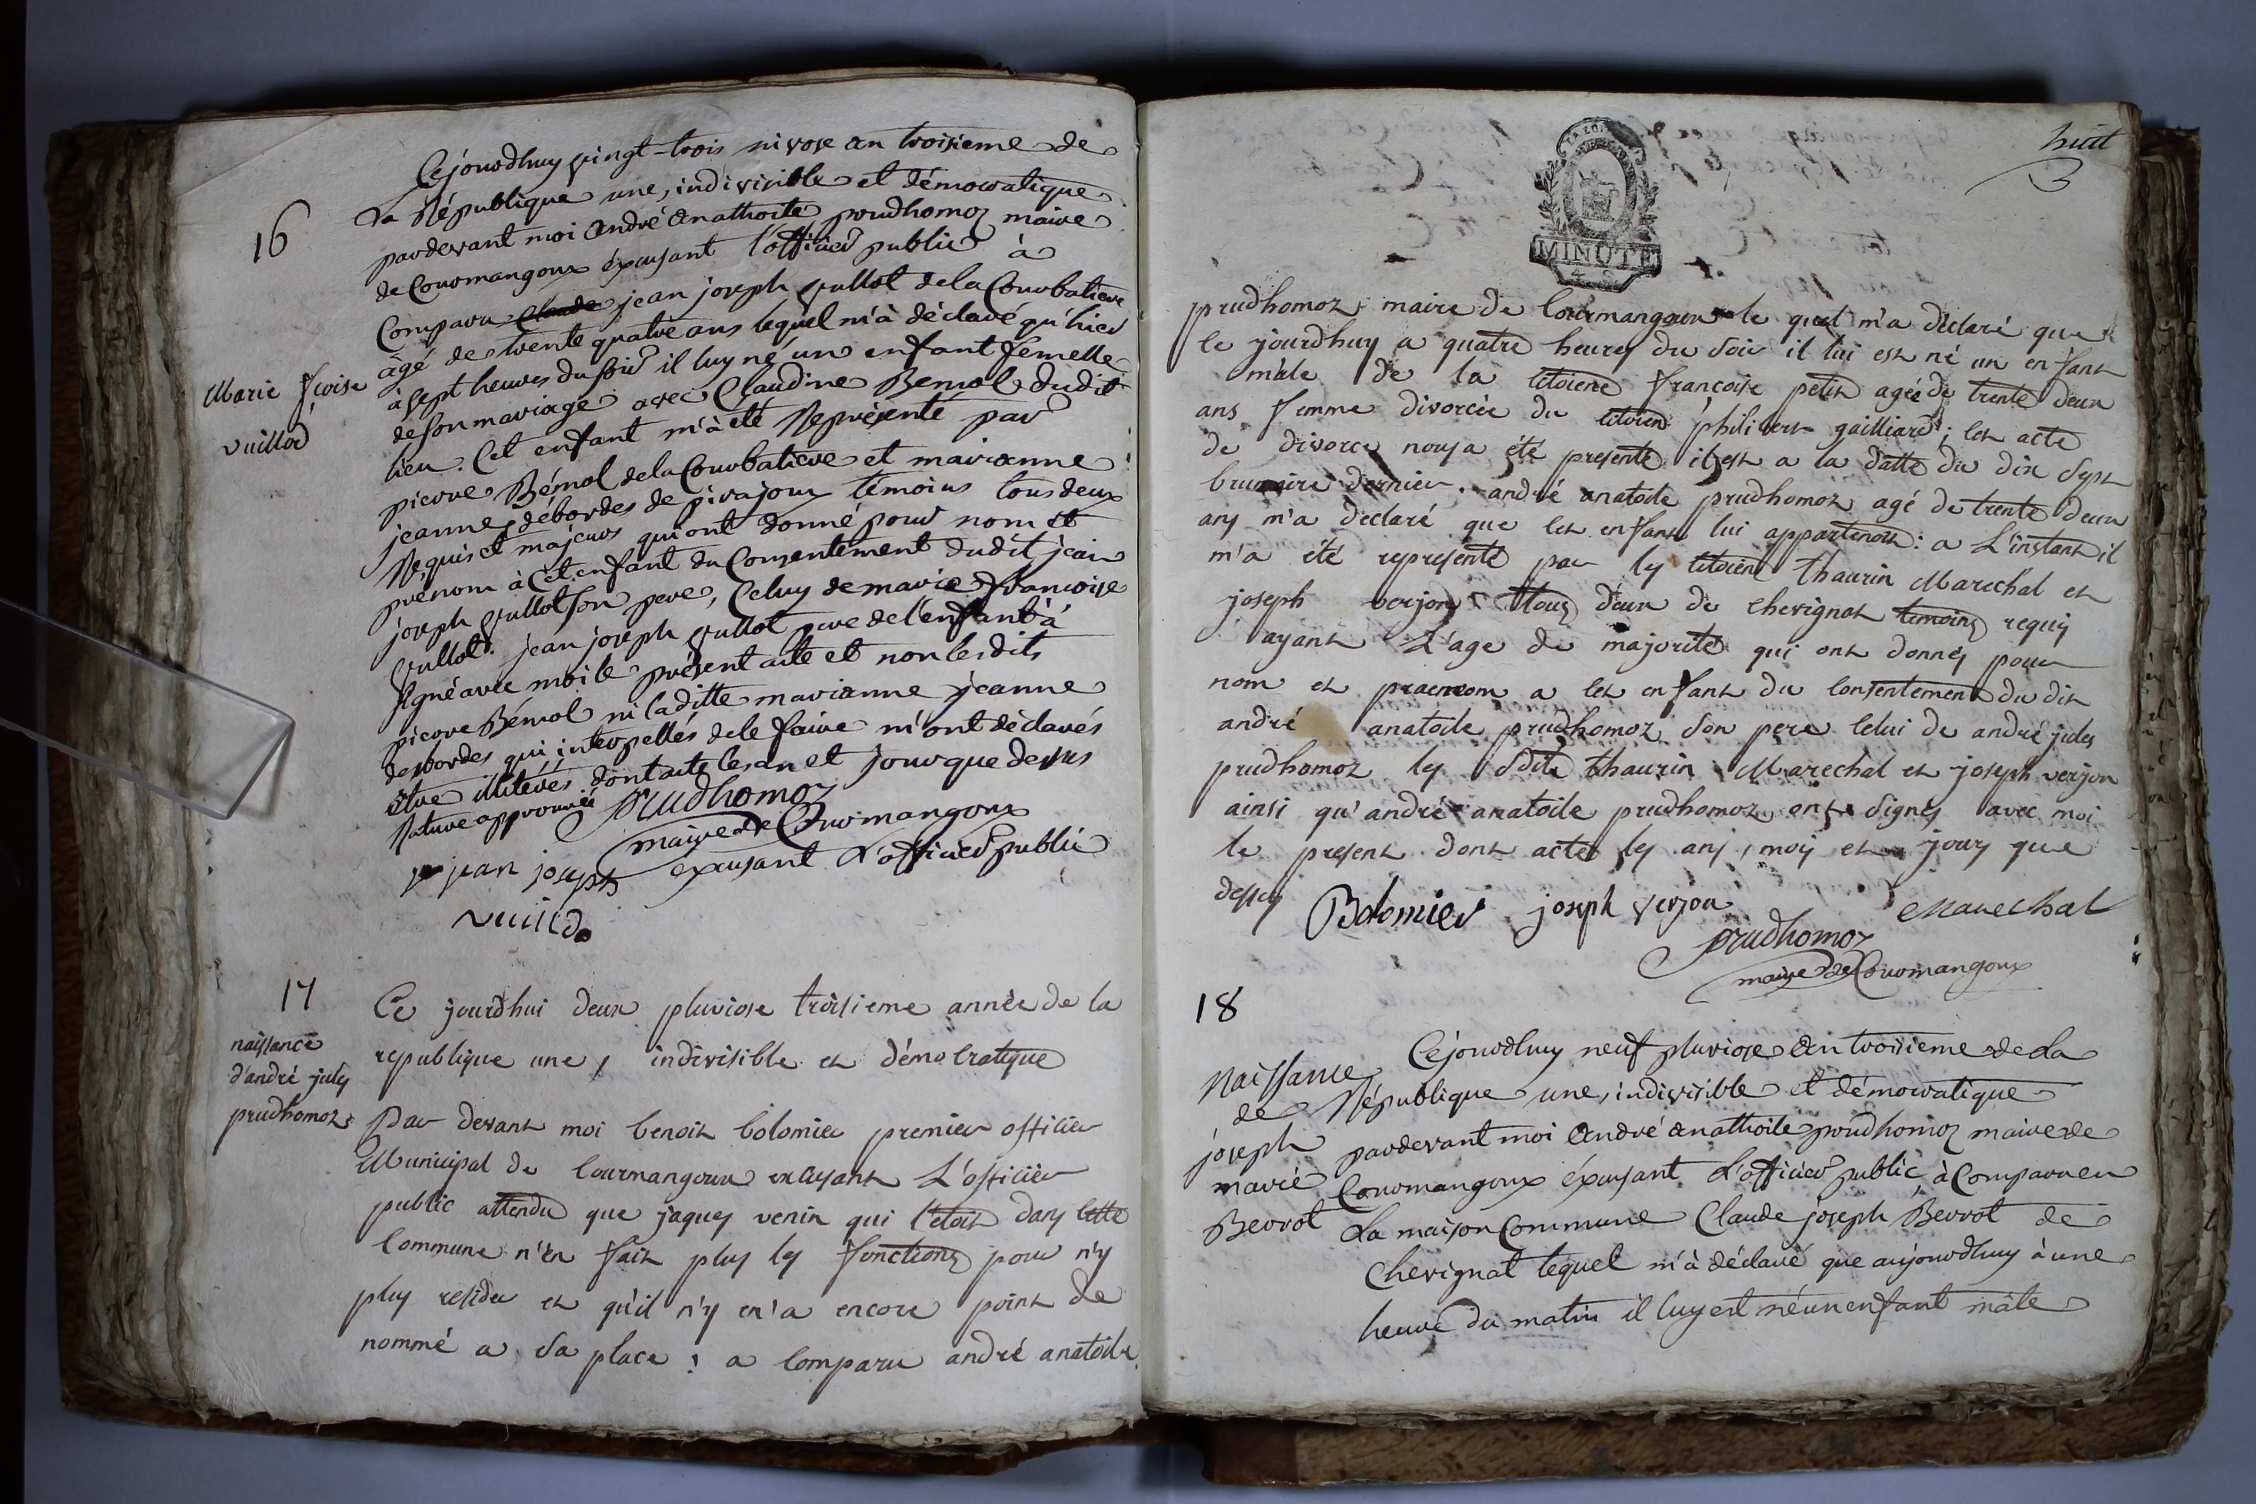 16
Marie fcoise
vuillod
Cejourdhuy vingt-trois nivose an troisieme de
La République une, indivisible et démocratique
pardevant moi André anathoile prudhomoz maire
de Courmangoux éxerçant l'officier public à
Comparu Claude jean joseph vullot de la Courbatiere
âgé de trente quatre ans lequel m'à déclaré qu'hier
à sept heures du soir il luy né un enfant femelle
de son mariage avec Claudine Bemol dudit
lieu. Cet enfant m'à été Représenté par
pierre Bémol de la Courbatiere et marianne
jeanne débordes de pirajoux témoins tous deux
Requis et majeurs qui ont donné pour nom et
prénom à Cet enfant du Consentement dudit jean
joseph vullot son pere, Celuy de marie francoise
vullot. jean joseph vullot pere de l'enfant à
signé avec moi le présent acte et non lesdits
pierre Bémol ni laditte marianne jeanne
desbordes qui interpellés de le faire m'ont déclarés
être illiterés dont acte les an et jour que dessus
Rature approuvée prudhomoz
maire de Courmangoux
exerçant L'officier public
jean joseph
vuillod
17
naissance
d'andré jules
prudhomoz
Ce jourdhui deux pluviose troisieme année de la
republique une, indivisible et démocratique
Par devant moi benoit bolomier premier officier
Municipal de Courmangoux exerçant L'officier
public attendu que jaques venin qui l'etoit dans cette
Commune n'en fait plus les fonctions pour n'y
plus resider et qu'il n'y en'a encore point de
nommé a sa place; a Comparu andré anatoile
huit
MINUTE
prudhomoz maire de Courmangoux le quel m'a déclaré que
ce jourdhuy a quatre heures du soir il lui est né un enfant
mâle de la citoiene francoise petit agée de trente deux
ans femme divorcée du citoien philibert gailliard; cet acte
de divorce nous a été presenté il est a la datte du dix sept
brumaire dernier. andré anatoile prudhomoz agé de trente deux
ans m'a declaré que cet enfant lui appartenoit: a L'instant il
m'a été representé par les citoiens thaurin Marechal et
joseph verjon tous deux de chevignat temoins requis
ayant L'age de majorité qui ont donnés pour
nom et praenom a cet enfant du consentement du dit
andré anatoile prudhomoz son pere Celui de andré jules
prudhomoz les sdits thaurin Marechal et joseph verjon
ainsi qu'andré anatoile prudhomoz ont signés avec moi
le present dont acte les ans, mois et jours que
dessus
Bolomier joseph verjon Marechal
prudhomoz
maire de Courmangoux
18
Naissance
de
joseph
marie
Berrot
Cejourdhuy neuf pluviose an troisieme de la
République une, indivisible et démocratique
pardevant moi André anathoile prudhomoz maire de
Courmangoux éxerçant L'officier public à Comparu en
La maison Commune Claude joseph Berrot de
Chevignat lequel m'à déclaré que aujourdhuy à une
heure du matin il luy est né un enfant mâle